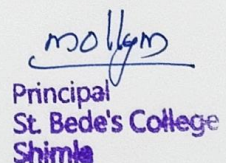 mollym
Principal
St. Bede's College
Shimla